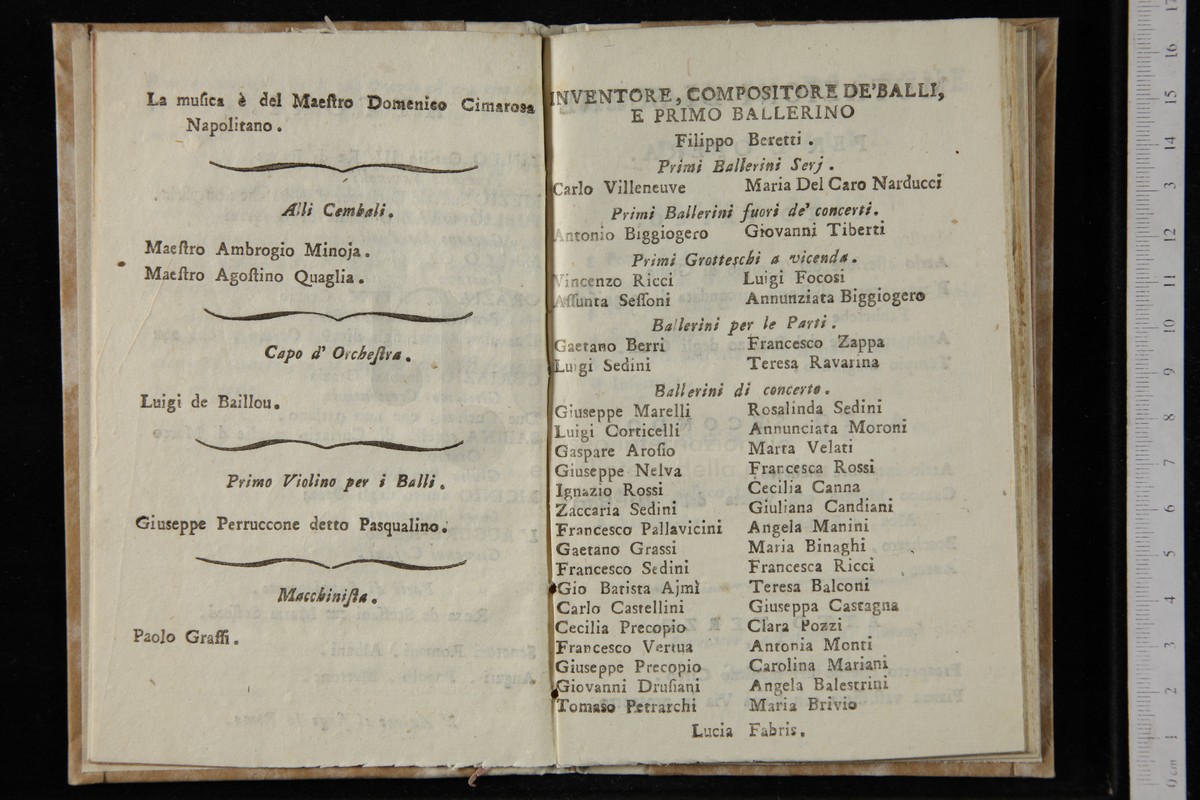 La musica è del Maestro Domenico Cimarosa
Napolitano.
Alli Cembali.
Maestro Ambrogio Minoja.
Maestro Agostino Quaglia.
Capo d' Orchestra.
Luigi de Baillou.
Primo Violino per i Balli.
Giuseppe Perruccone detto Pasqualino.
Macchinista.
Paolo Grassi.
INVENTORE, COMPOSITORE DE' BALLI,
E PRIMO BALLERINO
Filippo Beretti.
Primi Ballerini Serj.
Carlo Villeneuve Maria Del Caro Narducci
Primi Ballerini fuori de' concerti.
Antonio Biggiogero Giovanni Tiberti
Primi Grotteschi a vicenda.
Vincenzo Ricci Luigi Focosi
Assunta Sessoni Annunziata Biggiogero
Ballerini per le Parti.
Gaetano Berri Francesco Zappa
Luigi Sedini Teresa Ravarina
Ballerini di concerto.
Giuseppe Marelli Rosalinda Sedini
Luigi Corticelli Annunciata Moroni
Gaspare Arosio Marta Velati
Giuseppe Nelva Francesca Rossi
Ignazio Rossi Cecilia Canna
Zaccaria Sedini Giuliana Candiani
Francesco Pallavicini Angela Manini
Gaetano Grassi Maria Binaghi
Francesco Sedini Francesca Ricci
Gio Batista Ajmì Teresa Balconi
Carlo Castellini Giuseppa Castagna
Cecilia Precopio Clara Pozzi
Francesco Vertua Antonia Monti
Giuseppe Precopio Carolina Mariani
Giovanni Drusiani Angela Balestrini
Tomaso Petrarchi Maria Brivio
Lucia Fabris.
17
16
15
14
13
12
11
10
9
8
7
6
5
4
3
2
1
0 cm